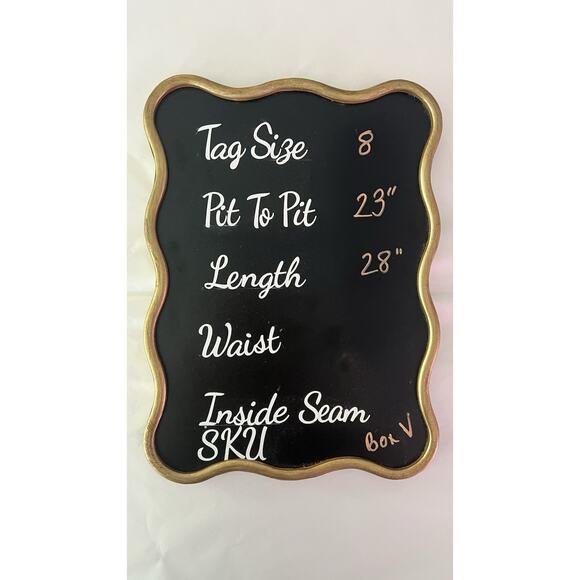 Tag Size 8
Pit To Pit 23"
Length 28"
Waist
Inside Seam
SKU Box V